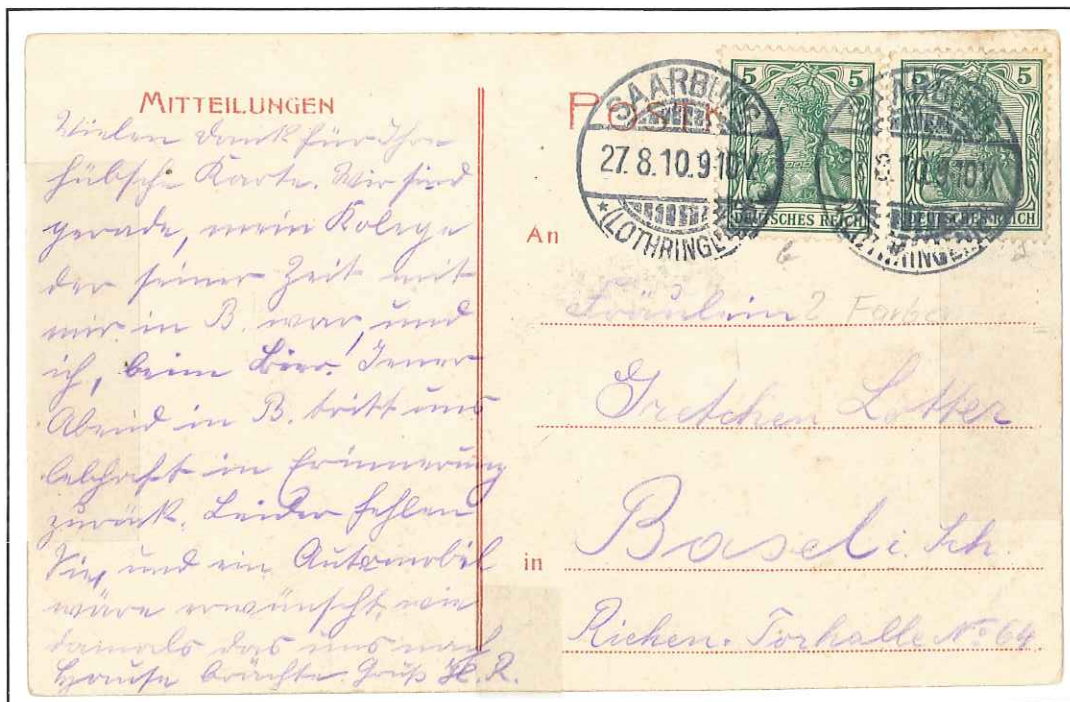 MITTEILUNGEN
Vielen Dank für Ihre
hübsche Karte. Wir sind
gerade, mein Kolege
der seiner Zeit mit
mir in B. war, und
ich, beim Bier! Jener
Abend in B. tritt uns
lebhaft in Erinnerung
zurück. Leider fehlen
Sie, und ein Automobil
wäre erwünscht, wie
damals das uns nach
Hause brächte. Gruß H. R.
POSTK
SAARBURG
27.8.10.9-10V.
*(LOTHRINGEN)
5 5
DEUTSCHES REICH
5 5
DEUTSCHES REICH
10.9-10V.
An
Fräulein
2 Farben
Gretchen Lotter
in
Basel i. Sch.
Riehen-Torhalle No 64.